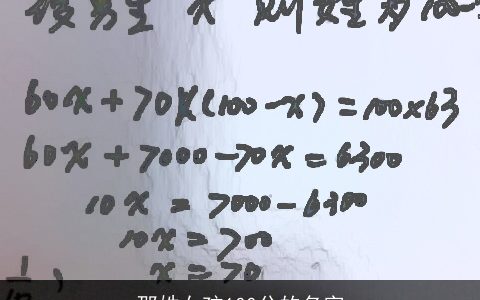 设男生 x 则女生为100-
60x+70x(100-x)=100×63
60x+7000-70x=6300
10x=7000-6300
10x=700
x=70